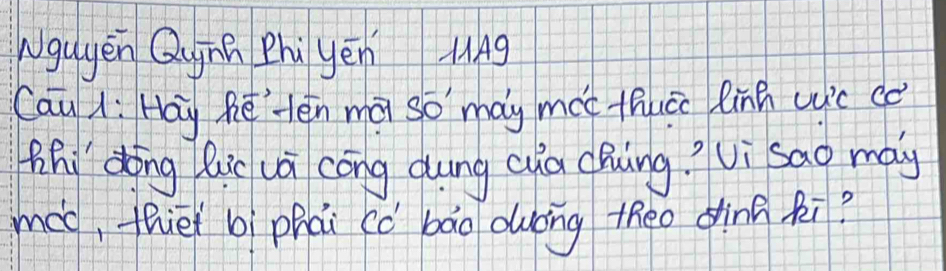 Nguyễn Quỳnh Phi Yến 11A9
Câu 1: Hãy kể tên một số máy móc thuộc lĩnh vực cơ
khí động lực và công dụng của chúng? Vì sao máy
móc, thiết bị phải có bảo dưỡng theo định kì?